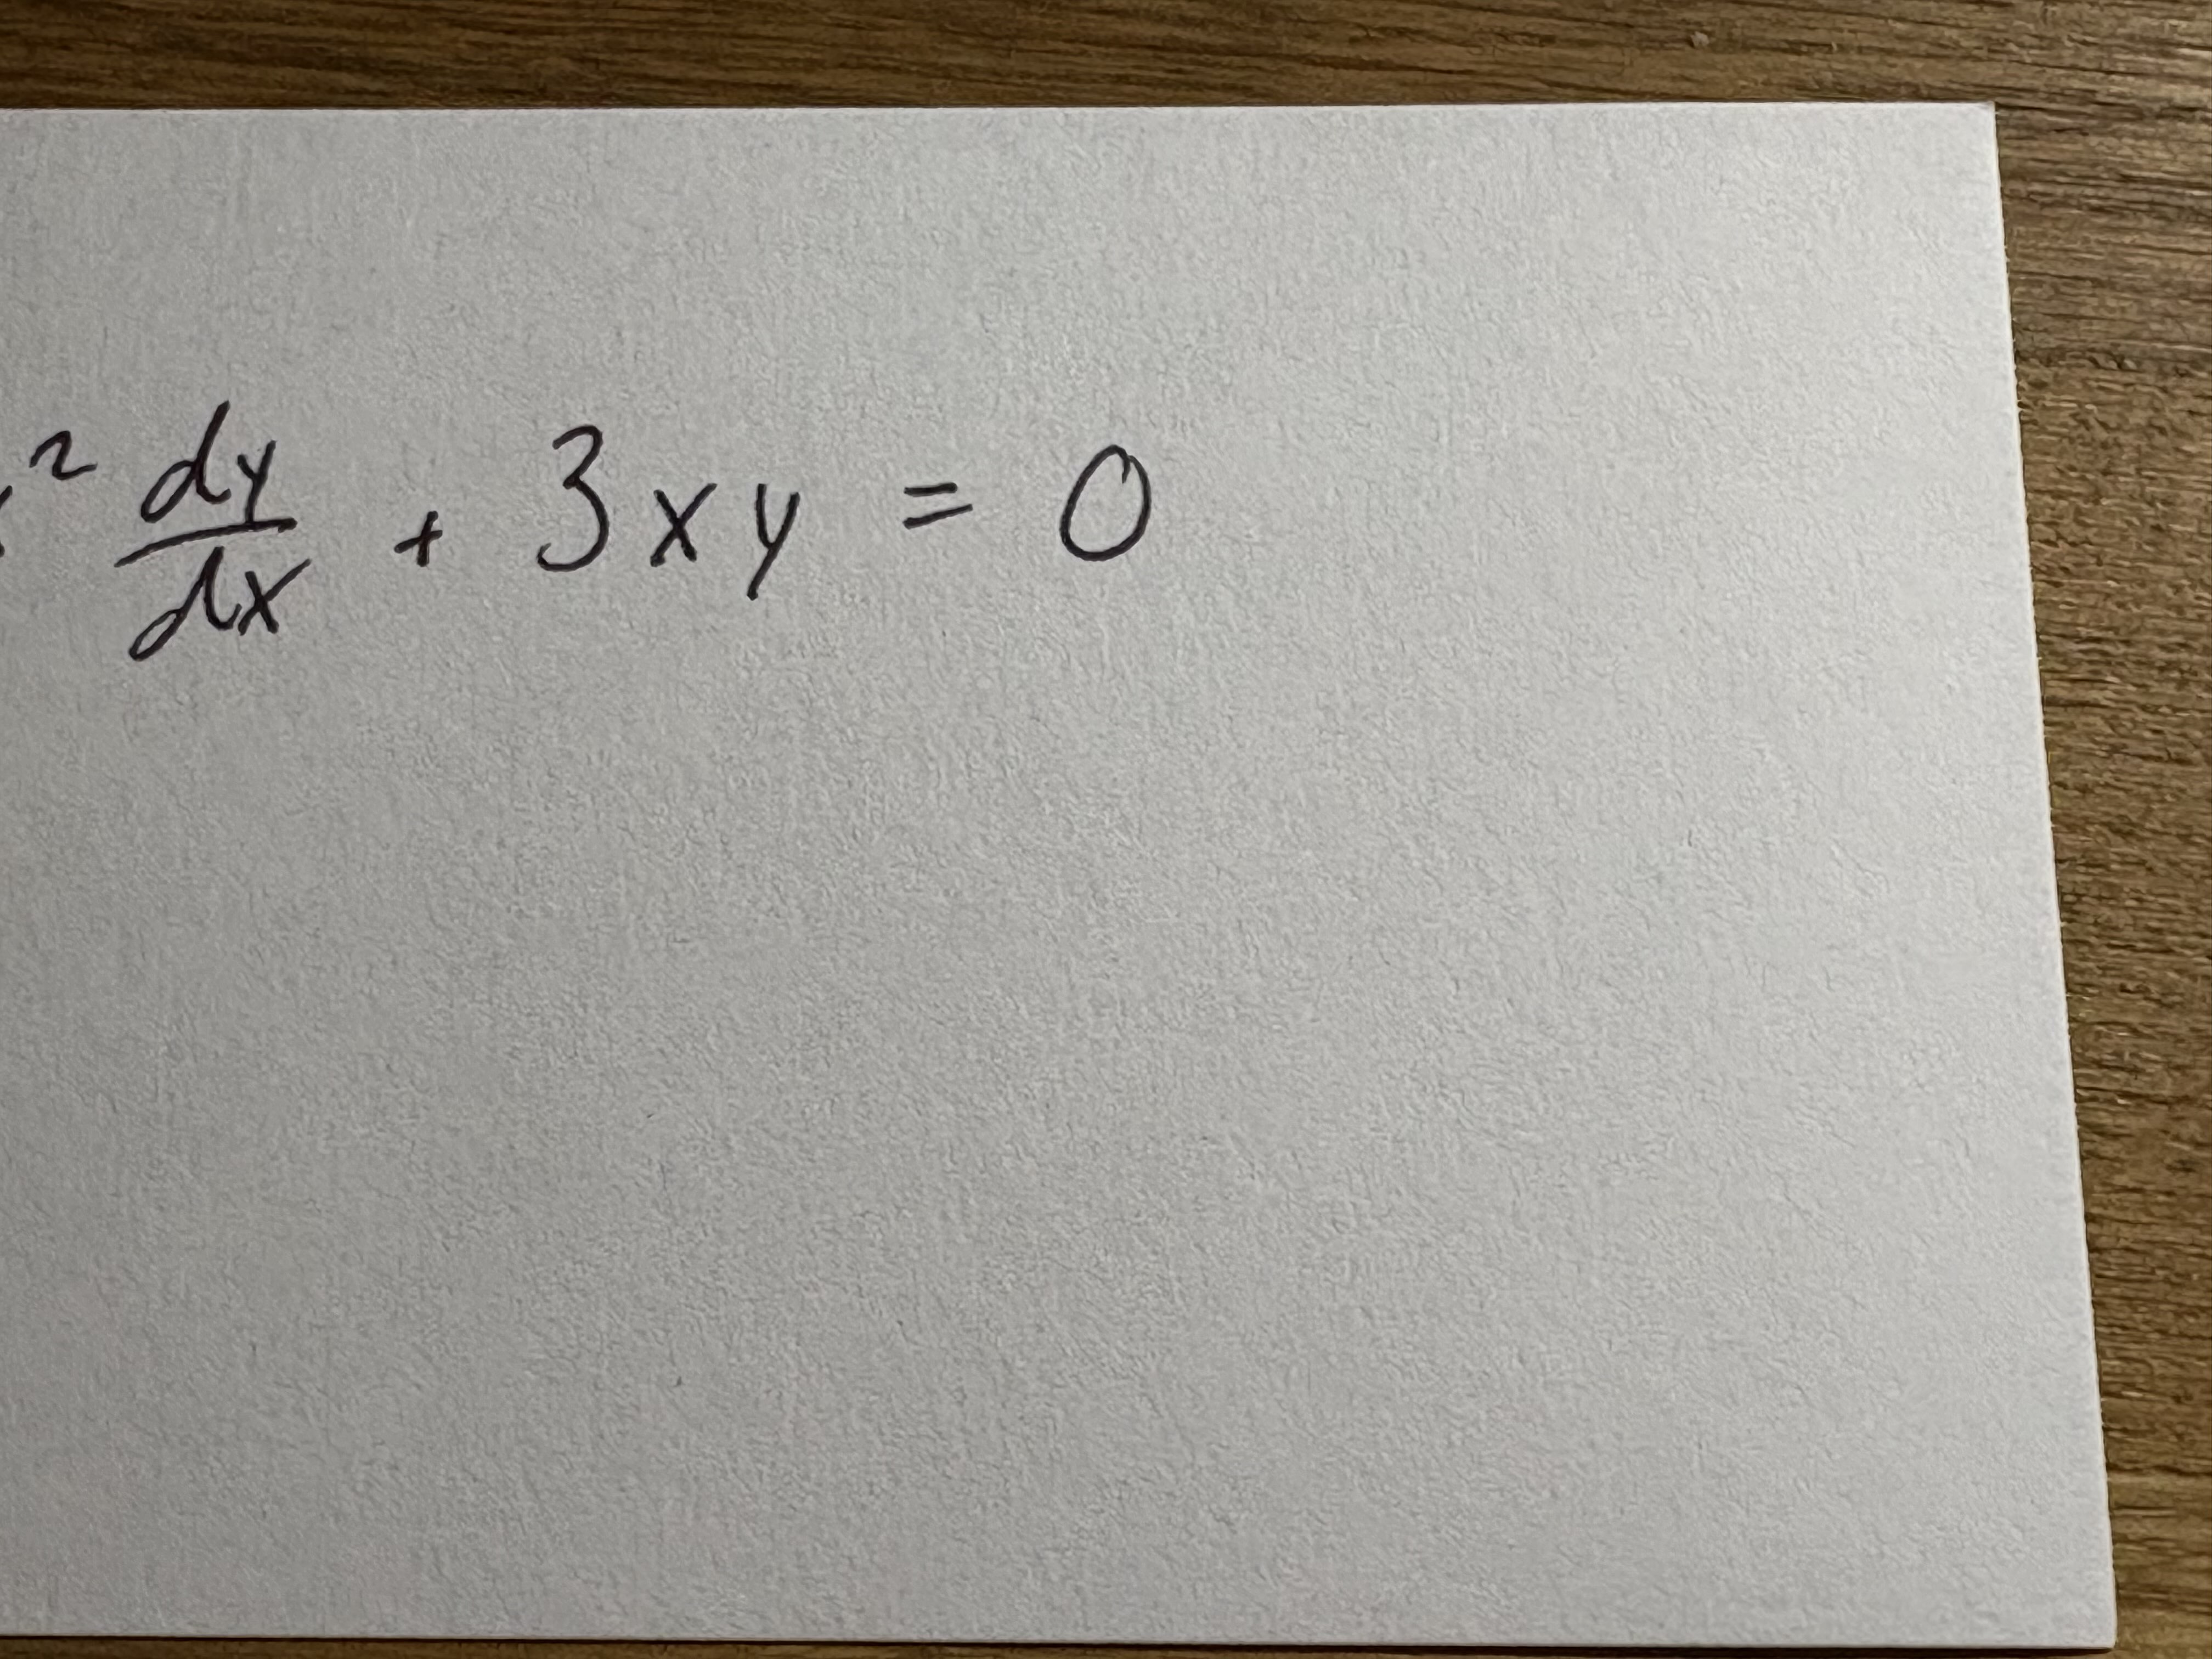 ² dy/dx + 3xy = 0